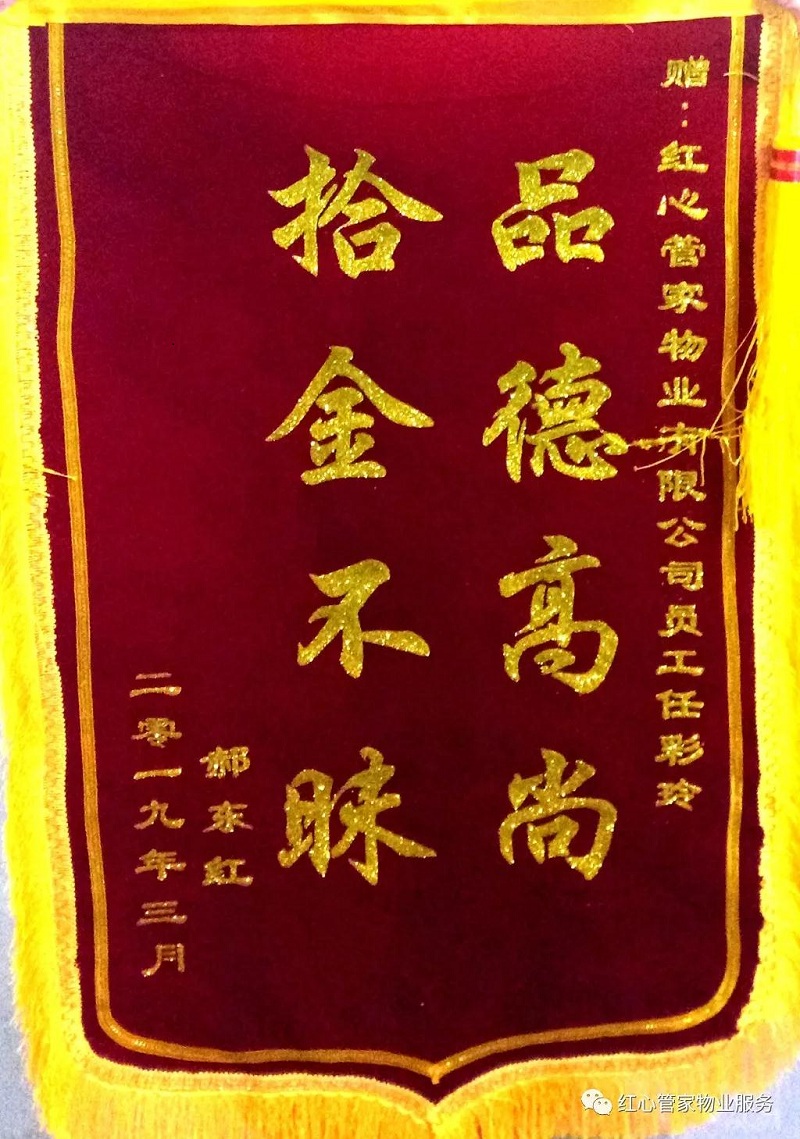 赠:红心管家物业有限公司员工任彩玲
品德高尚
拾金不昧
郝东红
二零一九年三月
红心管家物业服务